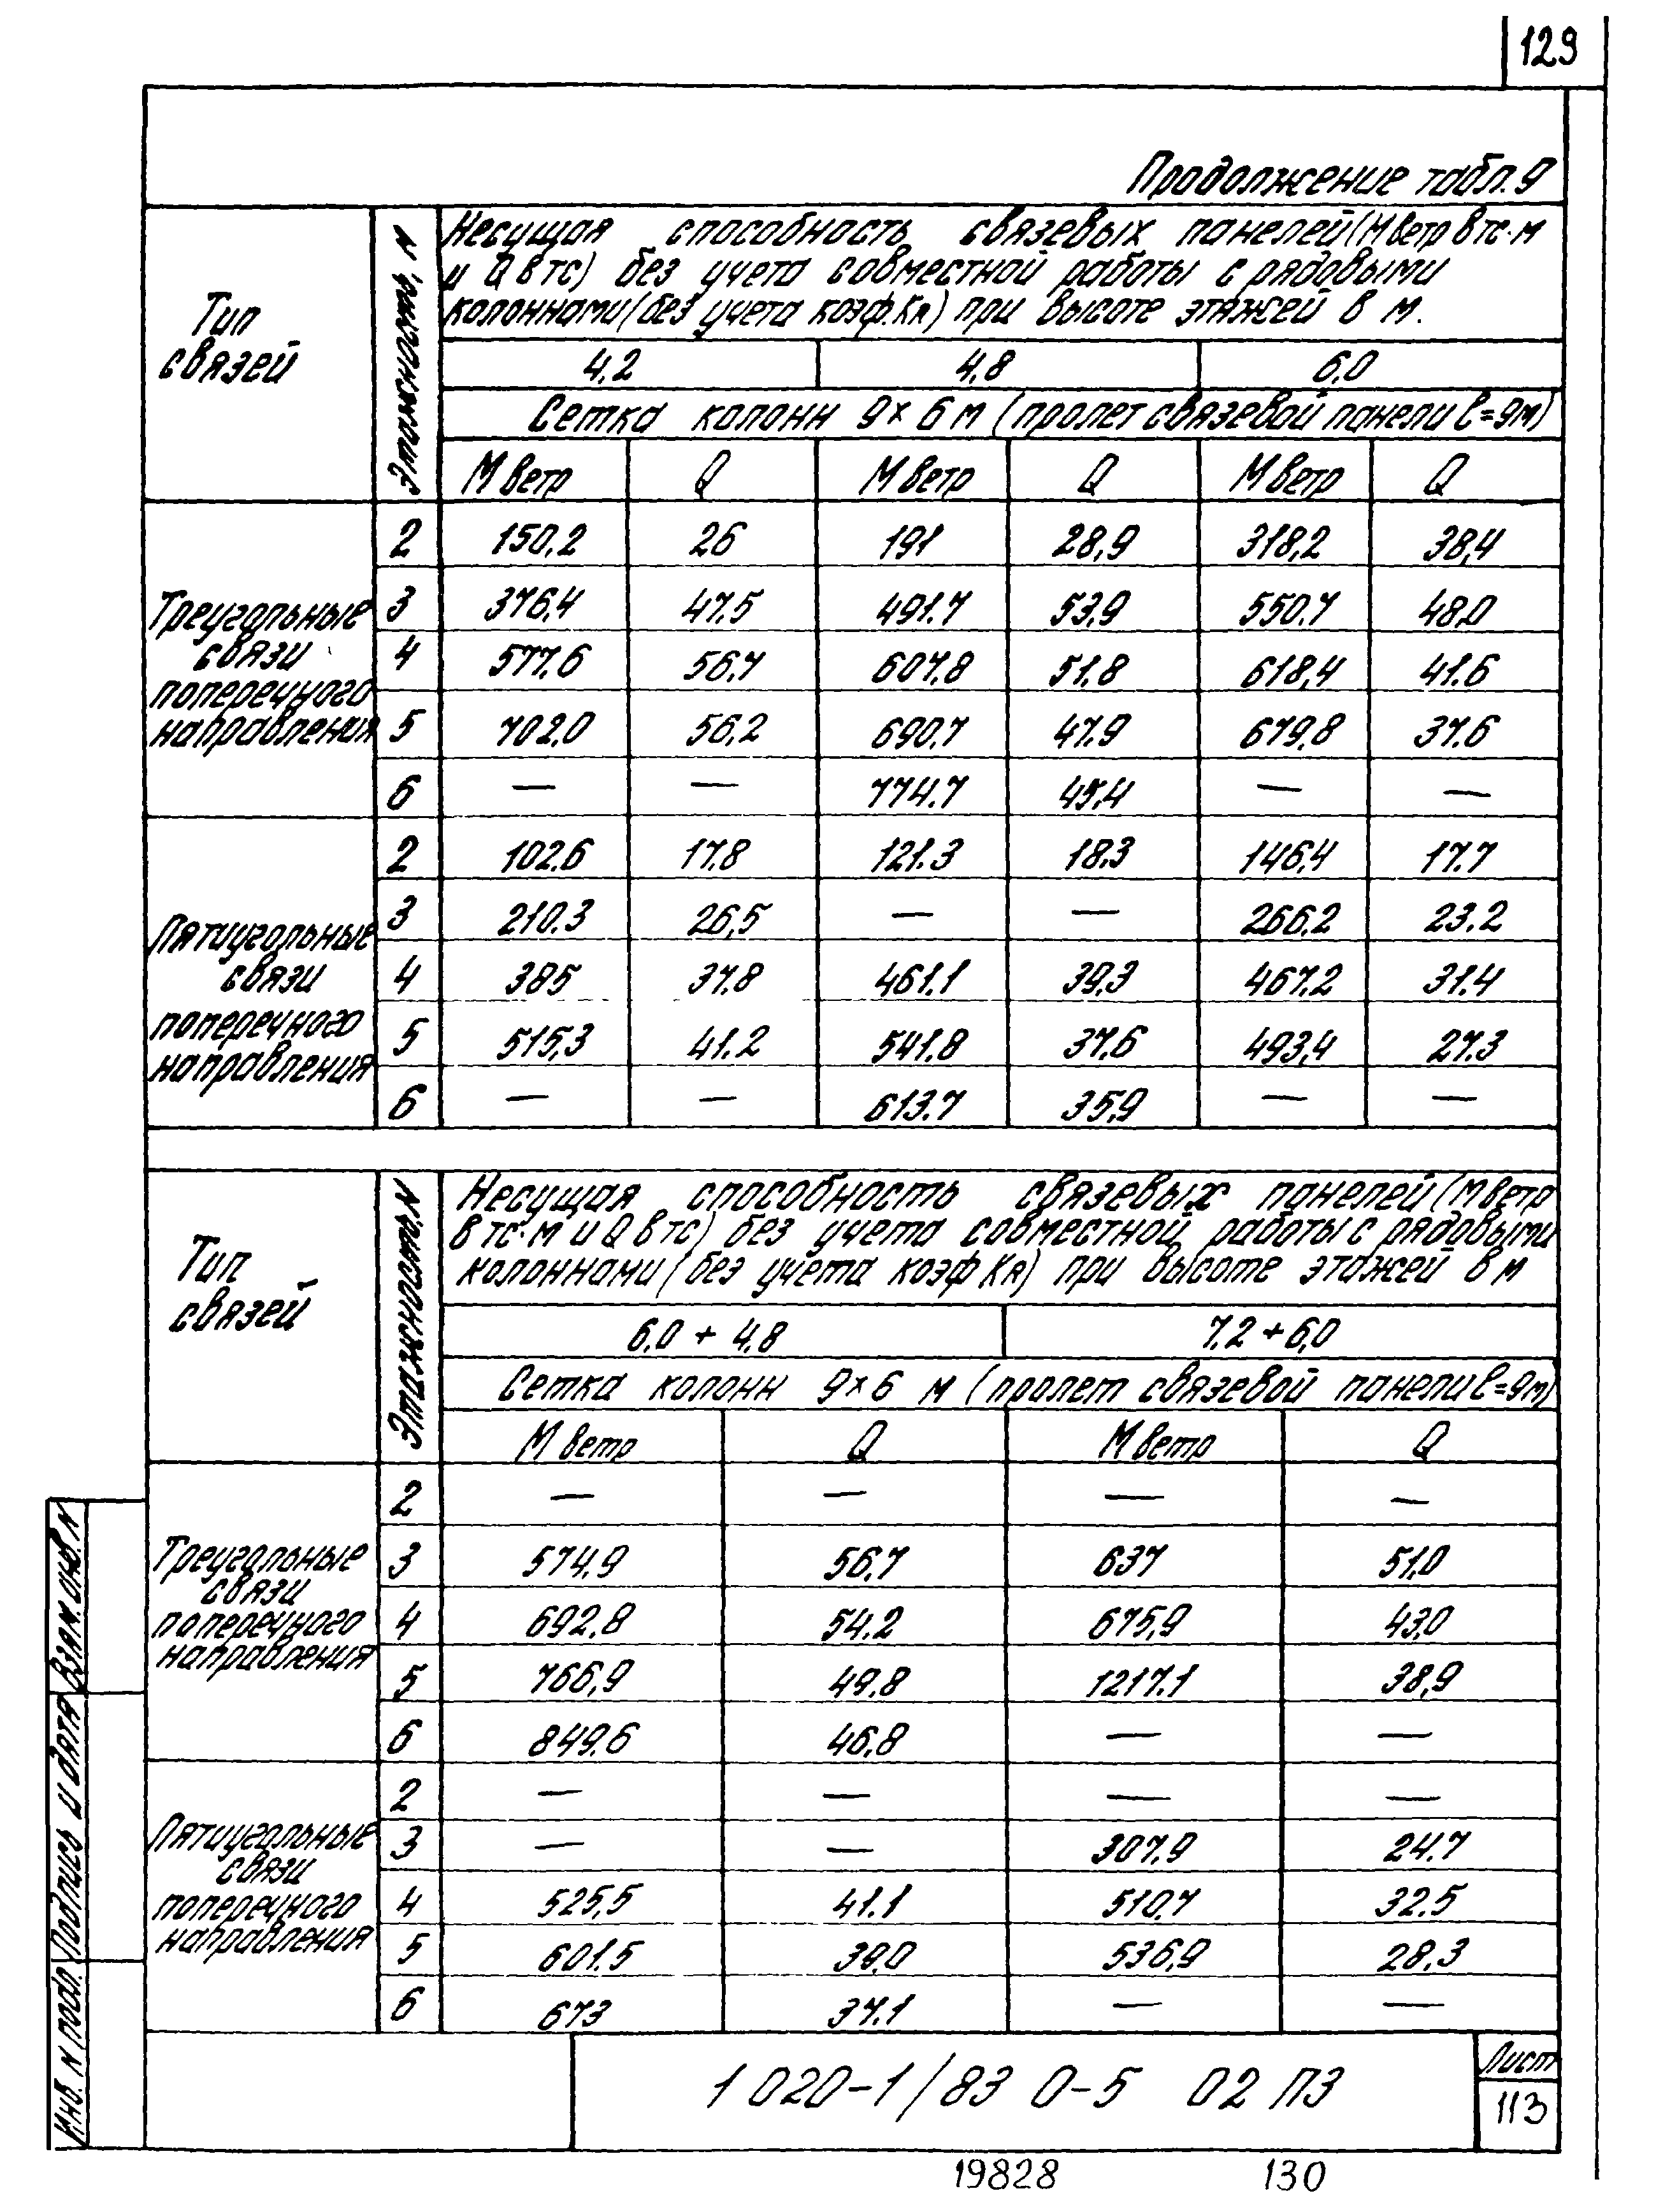 129
Продолжение табл. 9
Тип связей
Этажность, N
Несущая способность связевых панелей (Мветр в тс·м
и Q в тс) без учета совместной работы с рядовыми
колоннами (без учета коэф. Кя) при высоте этажей в м.
4,2 4,8 6,0
Сетка колонн 9×6 м (пролет связевой панели ℓ=9м)
М ветр Q М ветр Q М ветр Q
Треугольные связи поперечного направления
2 150,2 26 191 28,9 318,2 38,4
3 376,4 47.5 491.7 53,9 550.7 48,0
4 577.6 56,7 607.8 51.8 618,4 41.6
5 702,0 56,2 690.7 47.9 679,8 37.6
6 — — 774.7 45,4 — —
Пятиугольные связи поперечного направления
2 102.6 17.8 121.3 18.3 146,4 17.7
3 210.3 26,5 — — 266.2 23.2
4 385 37.8 461.1 39,3 467.2 31.4
5 515,3 41.2 541.8 37.6 493,4 27.3
6 — — 613.7 35,9 — —
Тип связей
Этажность, N
Несущая способность связевых панелей (Мветр
в тс·м и Q в тс) без учета совместной работы с рядовыми
колоннами (без учета коэф Кя) при высоте этажей в м
6.0 + 4.8 7.2 + 6,0
Сетка колонн 9×6 м (пролет связевой панели ℓ=9м)
М ветр Q М ветр Q
Треугольные связи поперечного направления
2 — — — —
3 574.9 56.7 637 51,0
4 692,8 54.2 675,9 43,0
5 766,9 49.8 1217.1 38,9
6 849.6 46,8 — —
Пятиугольные связи поперечного направления
2 — — — —
3 — — 307,9 24.7
4 525,5 41.1 510,7 32.5
5 601.5 39,0 536,9 28,3
6 673 37.1 — —
Взам. инв. N
Подпись и дата
Инв. N подл.
1 020-1/83 0-5 02 ПЗ
Лист
113
19828 130